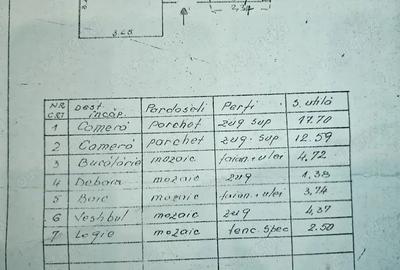 3.60
NR CRT Dest. incap. Pardoseli Pereti S. utilă
1 Cameră Parchet zug. sup 17.70
2 Cameră parchet zug. sup 12.59
3 Bucătărie mozaic faian+ulei 4.72
4 Debara mozaic zug 1,38
5 Baie mozaic faian+ulei 3,74
6 Vestibul mozaic zug 4,37
7 Logie mozaic tenc. spec 2.50